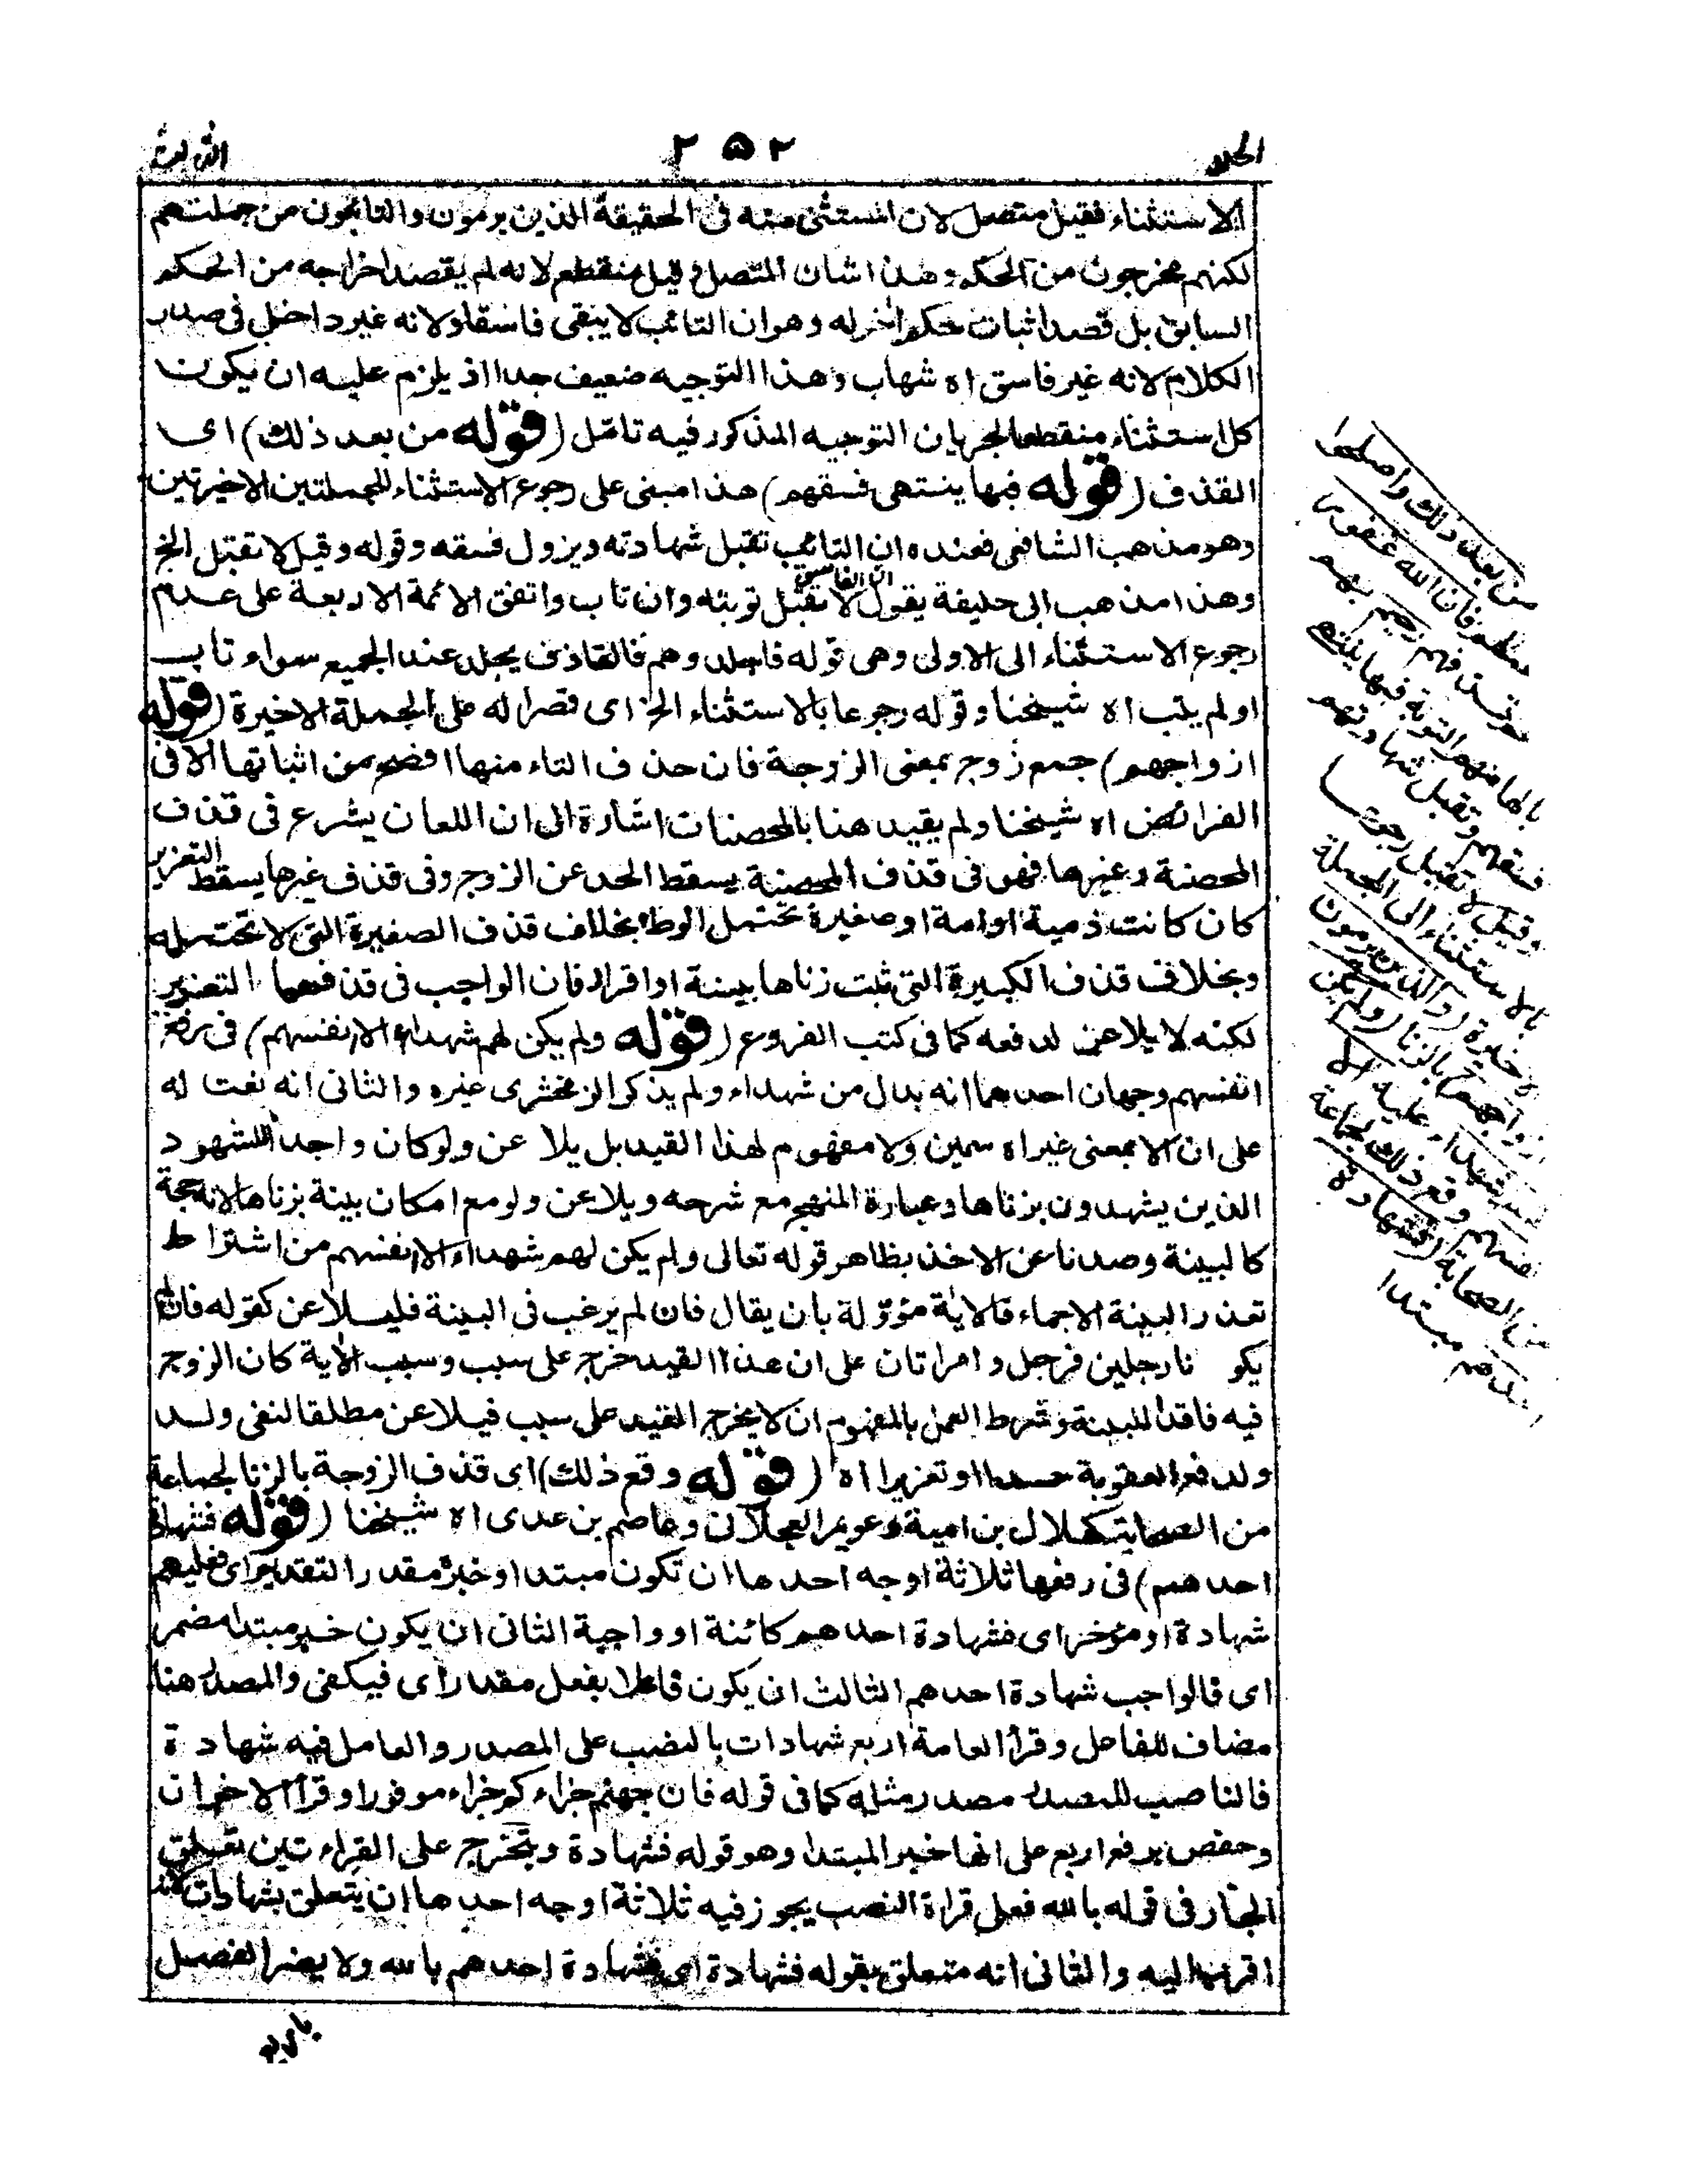 الجلد
٢٥٢
الثالث
الاستثناء فقيل متصل لان المستثنى منه فى الحقيقة الذين يرمون والتائبون من جملتهم
لكنهم مخرجون من الحكم وهذا شان المتصل وقيل منقطع لانه لم يقصد اخراجه من الحكم
السابق بل قصد اثبات حكم اخر له وهو ان التائب لا يبقى فاسقا ولانه غير داخل فى صدر
الكلام لانه غير فاسق اه شهاب وهذا التوجيه ضعيف جدا اذ يلزم عليه ان يكون
كل استثناء منقطعا لجريان التوجيه المذكور فيه تامل (قوله من بعد ذلك) اى
القذف (قوله فبها ينتهى فسقهم) هذا مبنى على رجوع الاستثناء للجملتين الاخيرتين
وهو مذهب الشافعى فعنده ان التائب تقبل شهادته ويزول فسقه وقوله وقيل لا تقبل الخ
وهذا مذهب ابى حنيفة يقول ان الفاسق لا تقبل توبته وان تاب واتفق الائمة الاربعة على عدم
رجوع الاستثناء الى الاولى وهى قوله فاجلدوهم فالقاذف يجلد عند الجميع سواء تاب
او لم يتب اه شيخنا وقوله رجوعا بالاستثناء الخ اى قصرا له على الجملة الاخيرة (قوله
ازواجهم) جمع زوج بمعنى الزوجة فان حذف التاء منها افصح من اثباتها الا فى
الفرائض اه شيخنا ولم يقيد هنا بالمحصنات اشارة الى ان اللعان يشرع فى قذف
المحصنة وغيرها فهو فى قذف المحصنة يسقط الحد عن الزوج وفى قذف غيرها يسقط التعزير
كان كانت ذمية او امة او صغيرة تحتمل الوطء بخلاف قذف الصغيرة التى لا تحتمله
وبخلاف قذف الكبيرة التى ثبت زناها ببينة او اقرار فان الواجب فى قذفهما التعزير
لكنه لا يلاعن لدفعه كما فى كتب الفروع (قوله ولم يكن لهم شهداء الا انفسهم) فى رفع
انفسهم وجهان احدهما انه بدل من شهداء ولم يذكر الزمخشرى غيره والثانى انه نعت له
على ان الا بمعنى غير اه سمين ولا مفهوم لهذا القيد بل يلاعن ولو كان واجدا للشهود
الذين يشهدون بزناها وعبارة المنهج مع شرحه ويلاعن ولو مع امكان بينة بزناها لانه حجة
كالبينة وصدنا عن الاخذ بظاهر قوله تعالى ولم يكن لهم شهداء الا انفسهم من اشتراط
تعذر البينة الاجماع فالاية مؤولة بان يقال فان لم يرغب فى البينة فليلاعن كقوله فان لم
يكونا رجلين فرجل وامراتان على ان هذا القيد خرج على سبب وسبب الاية كان الزوج
فيه فاقدا للبينة وشرط العمل بالمفهوم ان لا يخرج القيد على سبب فيلاعن مطلقا لنفى ولد
ولدفع العقوبة حدا او تعزيرا اه (قوله وقع ذلك) اى قذف الزوجة بالزنا لجماعة
من الصحابة كهلال بن امية وعويمر العجلانى وعاصم بن عدى اه شيخنا (قوله فشهادة
احدهم) فى رفعها ثلاثة اوجه احدها ان تكون مبتدا وخبره مقدر التقديم اى فعليهم
شهادة او مؤخر اى فشهادة احدهم كائنة او واجبة الثانى ان يكون خبر مبتدا مضمر
اى فالواجب شهادة احدهم الثالث ان يكون فاعلا بفعل مقدر اى فيكفى والمصدر هنا
مضاف للفاعل وقرأ العامة اربع شهادات بالنصب على المصدر والعامل فيه شهادة
فالناصب للمصدر مصدر مثله كما فى قوله فان جهنم جزاءكم جزاء موفورا وقرأ الاخوان
وحفص برفع اربع على انها خبر المبتدا وهو قوله فشهادة ويتخرج على القراءتين تعلق
الجار فى قوله بالله فعلى قراءة النصب يجوز فيه ثلاثة اوجه احدها ان يتعلق بشهادات لانه
اقرب اليه والثانى انه متعلق بقوله فشهادة اى فشهادة احدهم بالله ولا يضر الفصل
من بعد ذلك واصلحوا
فان الله غفور
رحيم بهم
بالهامهم التوبة فبها ينتهى
فسقهم وتقبل شهادتهم
وقيل لا تقبل رجوعا
بالاستثناء الى الجملة
الاخيرة والذين يرمون
ازواجهم بالزنا ولم يكن
لهم شهداء عليه الا
انفسهم وقع ذلك لجماعة
من الصحابة فشهادة
احدهم مبتدا